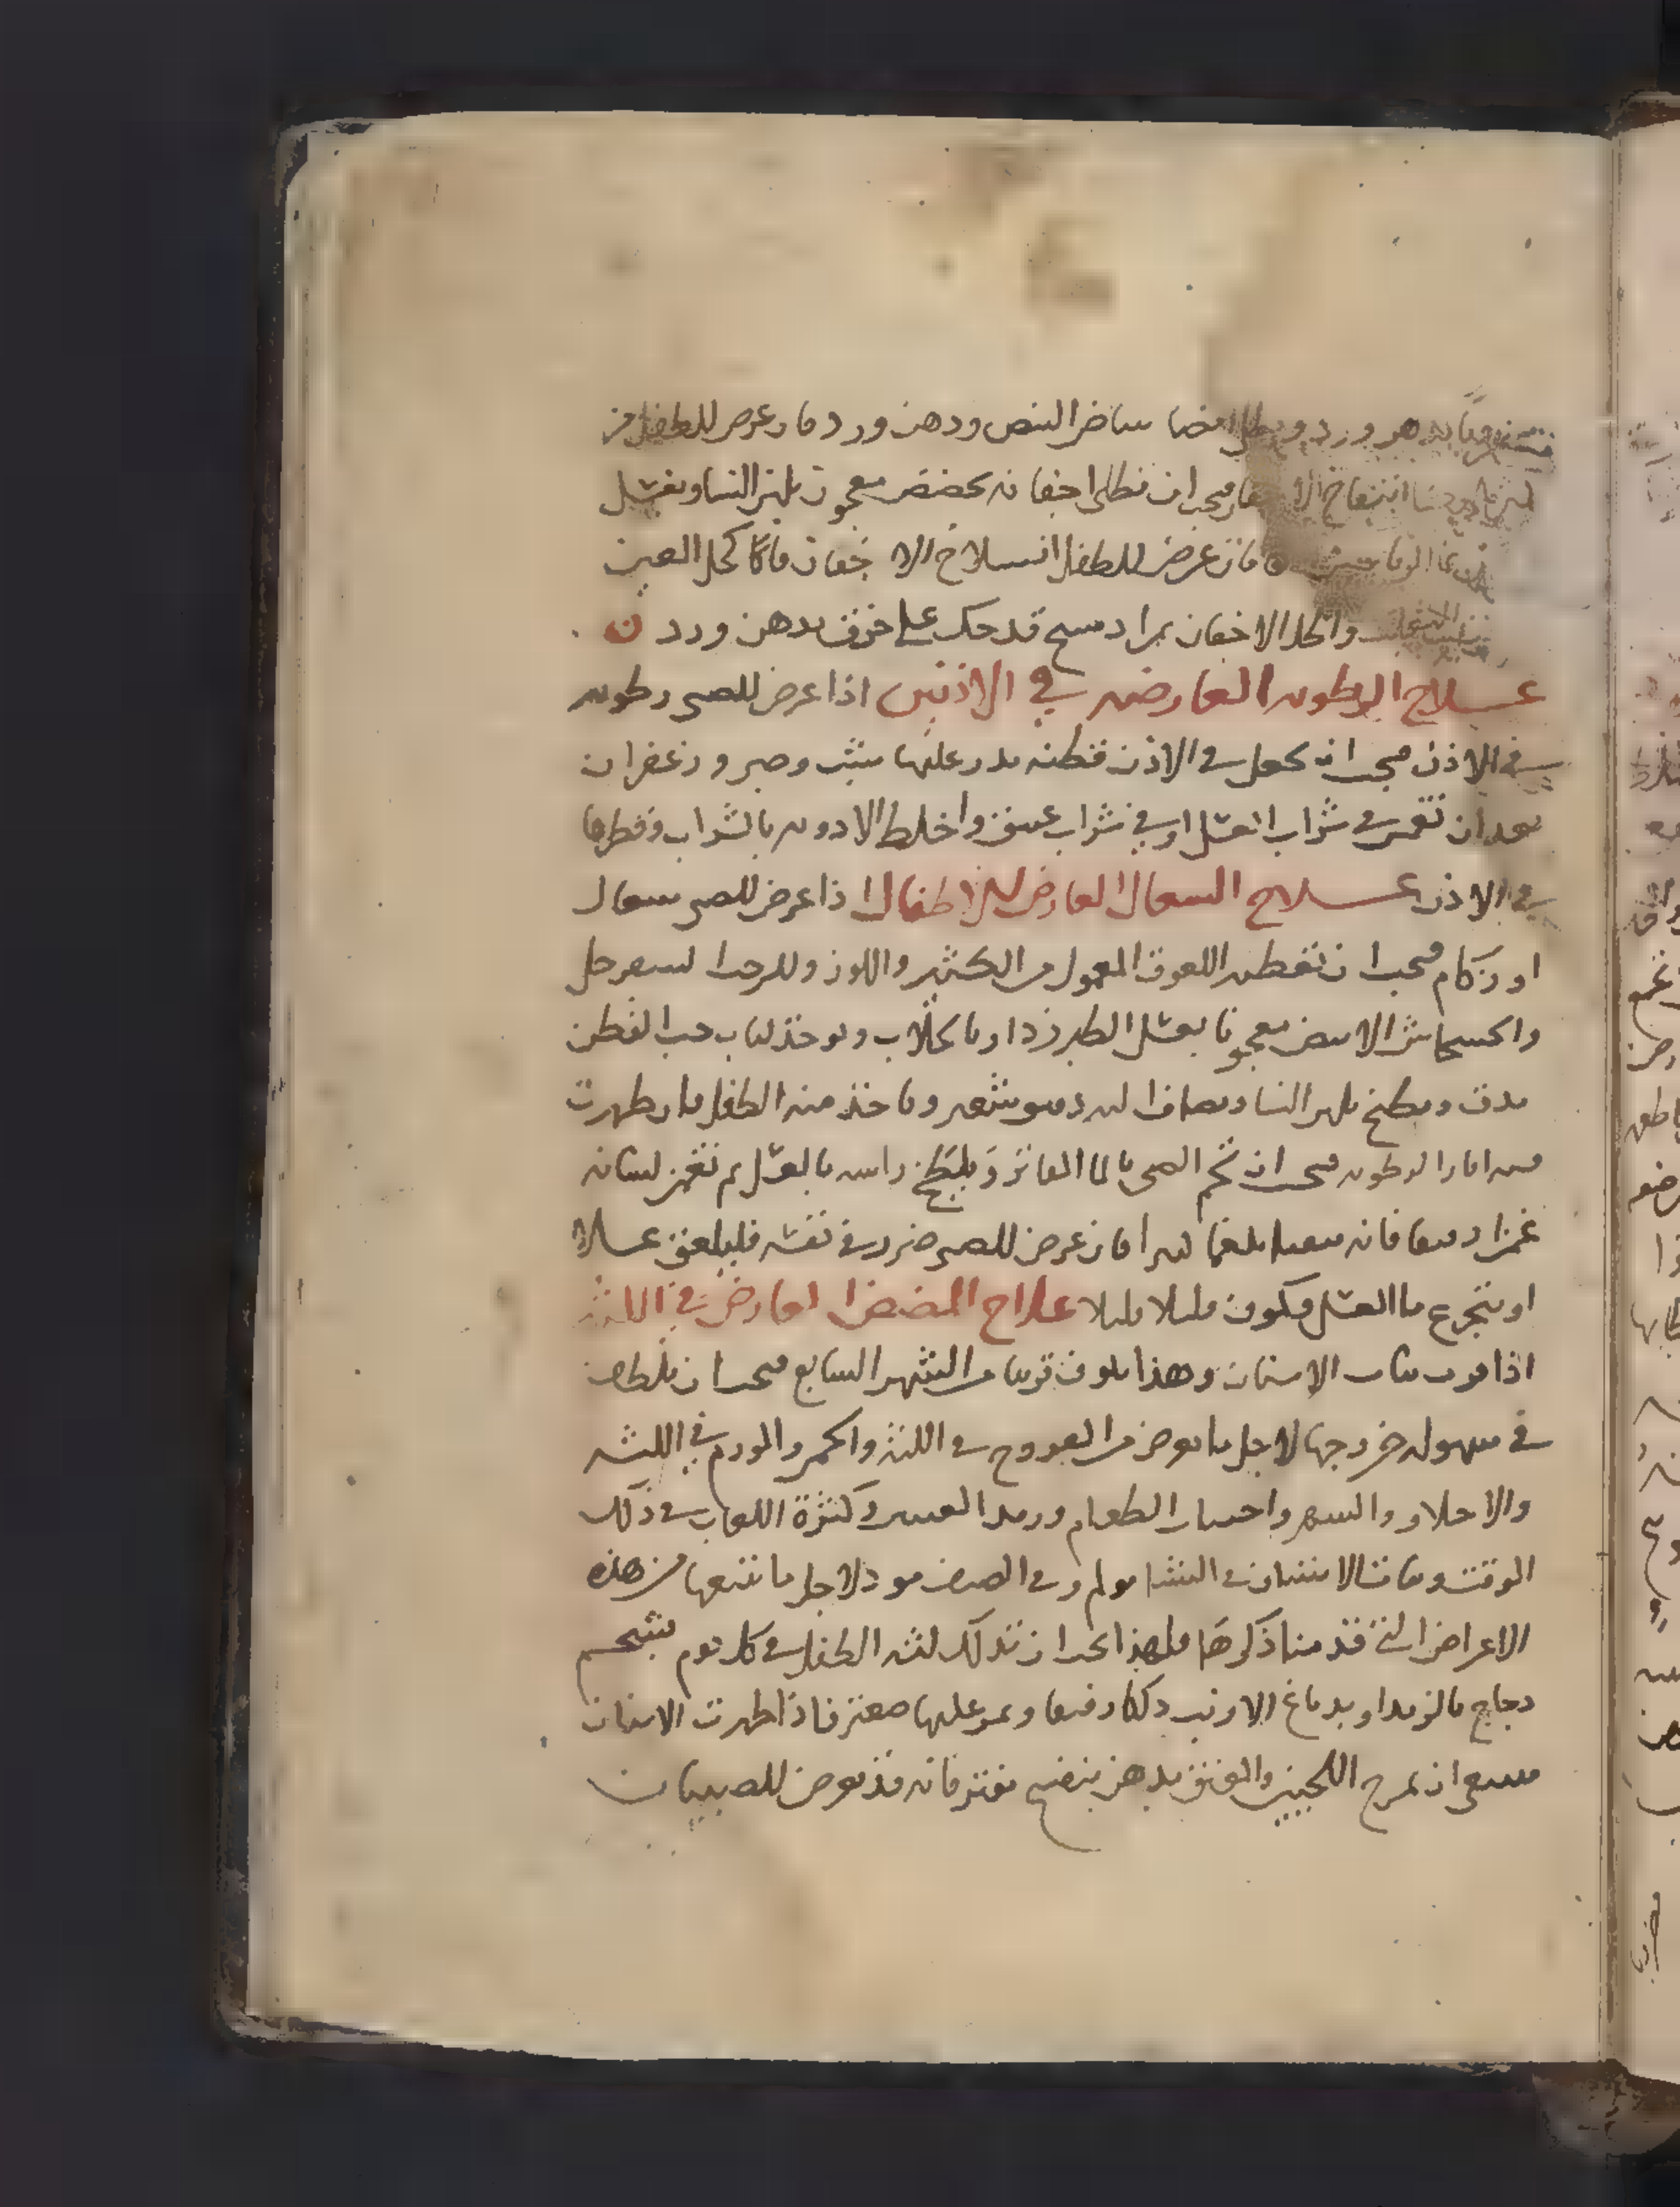 بدهن ورد ويطلى ايضا ببياض البيض ودهن ورد فان عرض للطفل من
انتفاخ الاجفان فيجب ان تطلى اجفانه بحضض معجون بلبن النسا ويغسل
فان عرض للطفل انسلاخ الاجفان فاكحل العين
واكحل الاجفان برادسبح قد حك على خزف بدهن ورد
علاج الرطوبه العارضه في الاذنين اذا عرض للصبي رطوبه
في الاذن فيجب ان تجعل في الاذن قطنه يذر عليها شب وصبر وزعفران
بعد ان تغمس في شراب العسل او في شراب عتيق واخلط الادويه بالشراب وقطرها
في الاذن علاج السعال العارض للاطفال اذا عرض للصبي سعال
او زكام فيجب ان تعطيه اللعوق المعمول من الكثير واللوز وللرحب السفرجل
والخشخاش الابيض معجونا بعسل الطبرزد او بالجلاب ويوخذ لباب حب القطن
يدق ويطبخ بلبن النسا ويضاف اليه دقيق شعير وياخذ منه الطفل فان ظهرت
فيه اثار الرطوبه فيجب ان تحم الصبي بالما الفاتر ويلطخ راسه بالعسل ثم تغمز لسانه
غمزا رقيقا فانه سيقيا بلغما كثيرا فان عرض للصبي ضرر في نفسه فليلعق عسلا
او يتجرع ما العسل فيكون قليلا قليلا علاج المضض العارض في اللثه
اذا قرب نبات الاسنان وهذا يكون قريبا من الشهر السابع فيجب ان تلطف
في سهوله خروجها لاجل ما يعرض من القروح في اللثه والحمر والورم في اللثه
والاختلاف والسهر واحتباس الطعام ورمد العينين وكثرة اللعاب في ذلك
الوقت ونبات الاسنان في الشتا مولم وفي الصيف مود لاجل ما يتبعها من هذه
الاعراض التي قد منا ذكرها فلهذا يجب ان تدلك لثه الطفل في كل يوم بشحم
دجاج بالزبد او بدماغ الارنب دلكا رقيقا ويمر عليها صعتر فاذا ظهرت الاسنان
فينبغي ان يمرخ اللحيين والعنق بدهن بنفسج مفتر فانه قد يعرض للصبيان